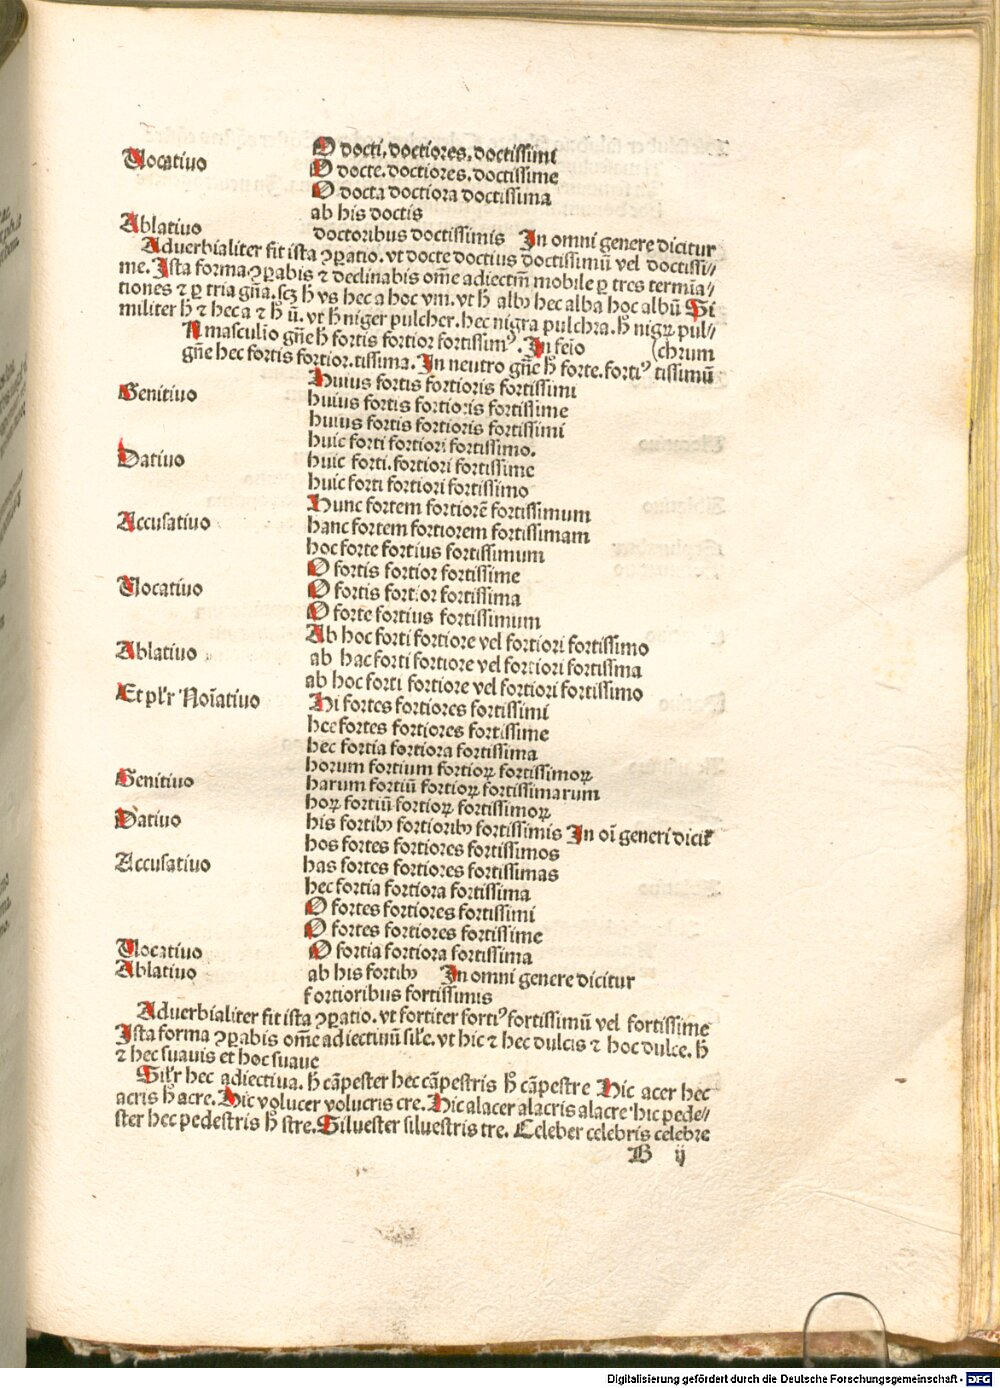 O docti. doctiores. doctissimi
Vocatiuo O docte. doctiores. doctissime
O docta doctiora doctissima
ab his doctis
Ablatiuo doctoribus doctissimis In omni genere dicitur
Aduerbialiter fit ista ꝯꝑatio. vt docte doctius doctissimū vel doctissi//
me. Ista forma ꝯꝑabis ⁊ declinabis om̄e adiectm̄ mobile ꝑ tres termīa/
tiones ⁊ ꝑ tria gn̄a. scꝫ h̄ vs hec a hoc vm. vt h̄ albꝰ hec alba hoc albū Si
militer h̄ ⁊ hec a ⁊ h̄ ū. vt h̄ niger pulcher. hec nigra pulchra. h̄ nigꝝ pul//
A masculīo gn̄e h̄ fortis fortior fortissimꝰ. In feīo (chrum
gn̄e hec fortis fortior. tissima. In neutro gn̄e h̄ forte. fortiꝰ tissimū
Huius fortis fortioris fortissimi
Genitiuo huius fortis fortioris fortissime
huius fortis fortioris fortissimi
huic forti fortiori fortissimo.
Datiuo huic forti. fortiori fortissime
huic forti fortiori fortissimo
Hunc fortem fortiorē fortissimum
Accusatiuo hanc fortem fortiorem fortissimam
hoc forte fortius fortissimum
O fortis fortior fortissime
Vocatiuo O fortis fortior fortissima
O forte fortius fortissimum
Ab hoc forti fortiore vel fortiori fortissimo
Ablatiuo ab hac forti fortiore vel fortiori fortissima
ab hoc forti fortiore vel fortiori fortissimo
Et pl'r Noīatiuo Hi fortes fortiores fortissimi
hee fortes fortiores fortissime
hec fortia fortiora fortissima
horum fortium fortioꝝ fortissimoꝝ
Genitiuo harum fortiū fortioꝝ fortissimarum
hoꝝ fortiū fortioꝝ fortissimoꝝ
Datiuo his fortibꝰ fortioribꝰ fortissimis In oī generi dicit̄
hos fortes fortiores fortissimos
Accusatiuo has fortes fortiores fortissimas
hec fortia fortiora fortissima
O fortes fortiores fortissimi
O fortes fortiores fortissime
Vocatiuo O fortia fortiora fortissima
Ablatiuo ab his fortibꝰ In omni genere dicitur
fortioribus fortissimis
Aduerbialiter fit ista ꝯꝑatio. vt fortiter fortiꝰ fortissimū vel fortissime
Ista forma ꝯꝑabis om̄e adiectiuū sil'e. vt hic ⁊ hec dulcis ⁊ hoc dulce. h̄
⁊ hec suauis et hoc suaue
Sil'r hec adiectiua. h̄ cāpester hec cāpestris h̄ cāpestre Hic acer hec
acris h̄ acre. Hic volucer volucris cre. Hic alacer alacris alacre hic pede//
ster hec pedestris h̄ stre. Siluester siluestris tre. Celeber celebris celebre
B ij
Digitalisierung gefördert durch die Deutsche Forschungsgemeinschaft - DFG